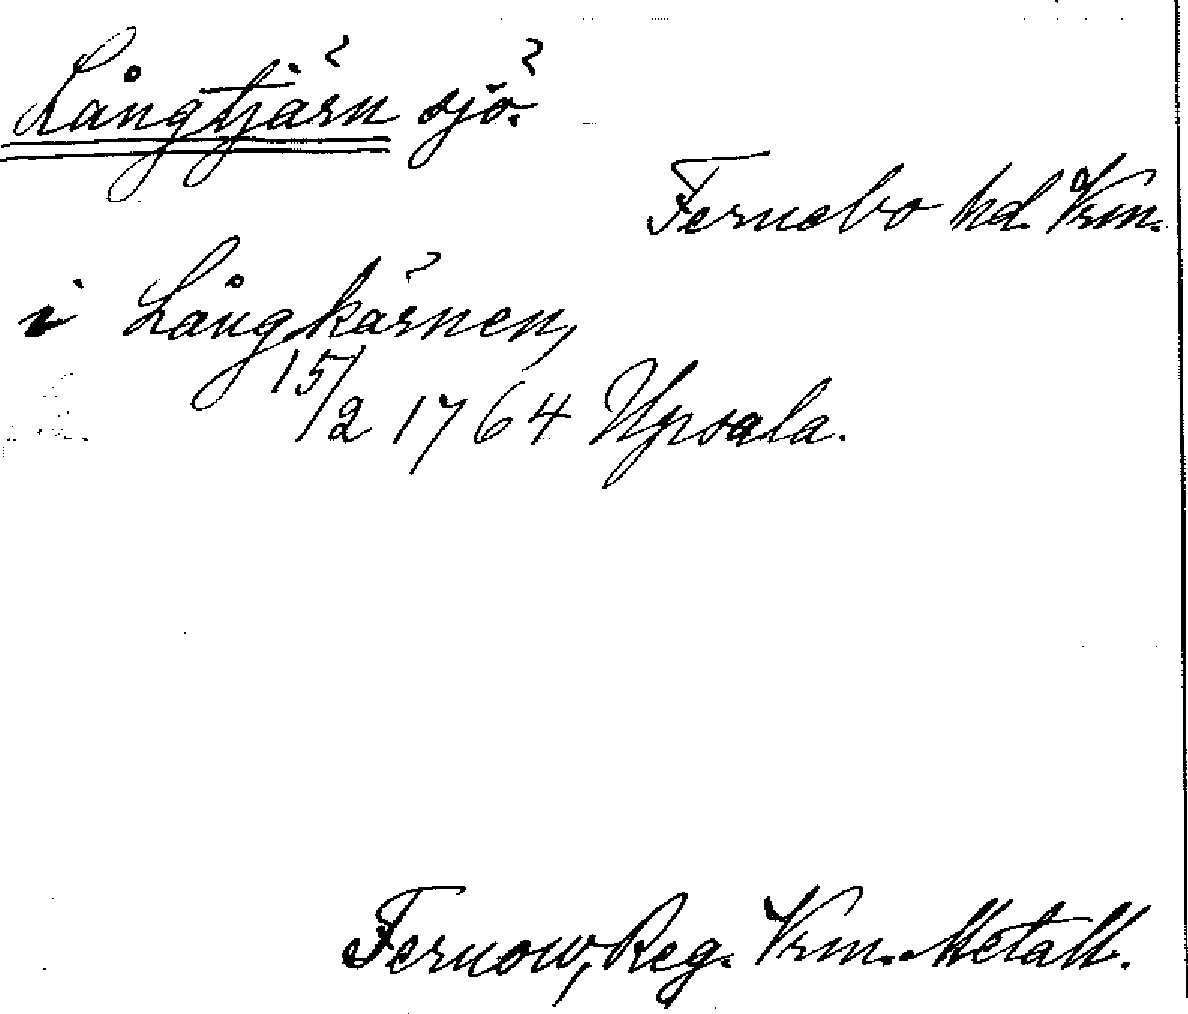 Långtjärn sjö?
Fernebo hd. Vrm.
i Långkärnen,
15/2 1764 Upsala.
Fernow, Reg. Vrm. Metall.